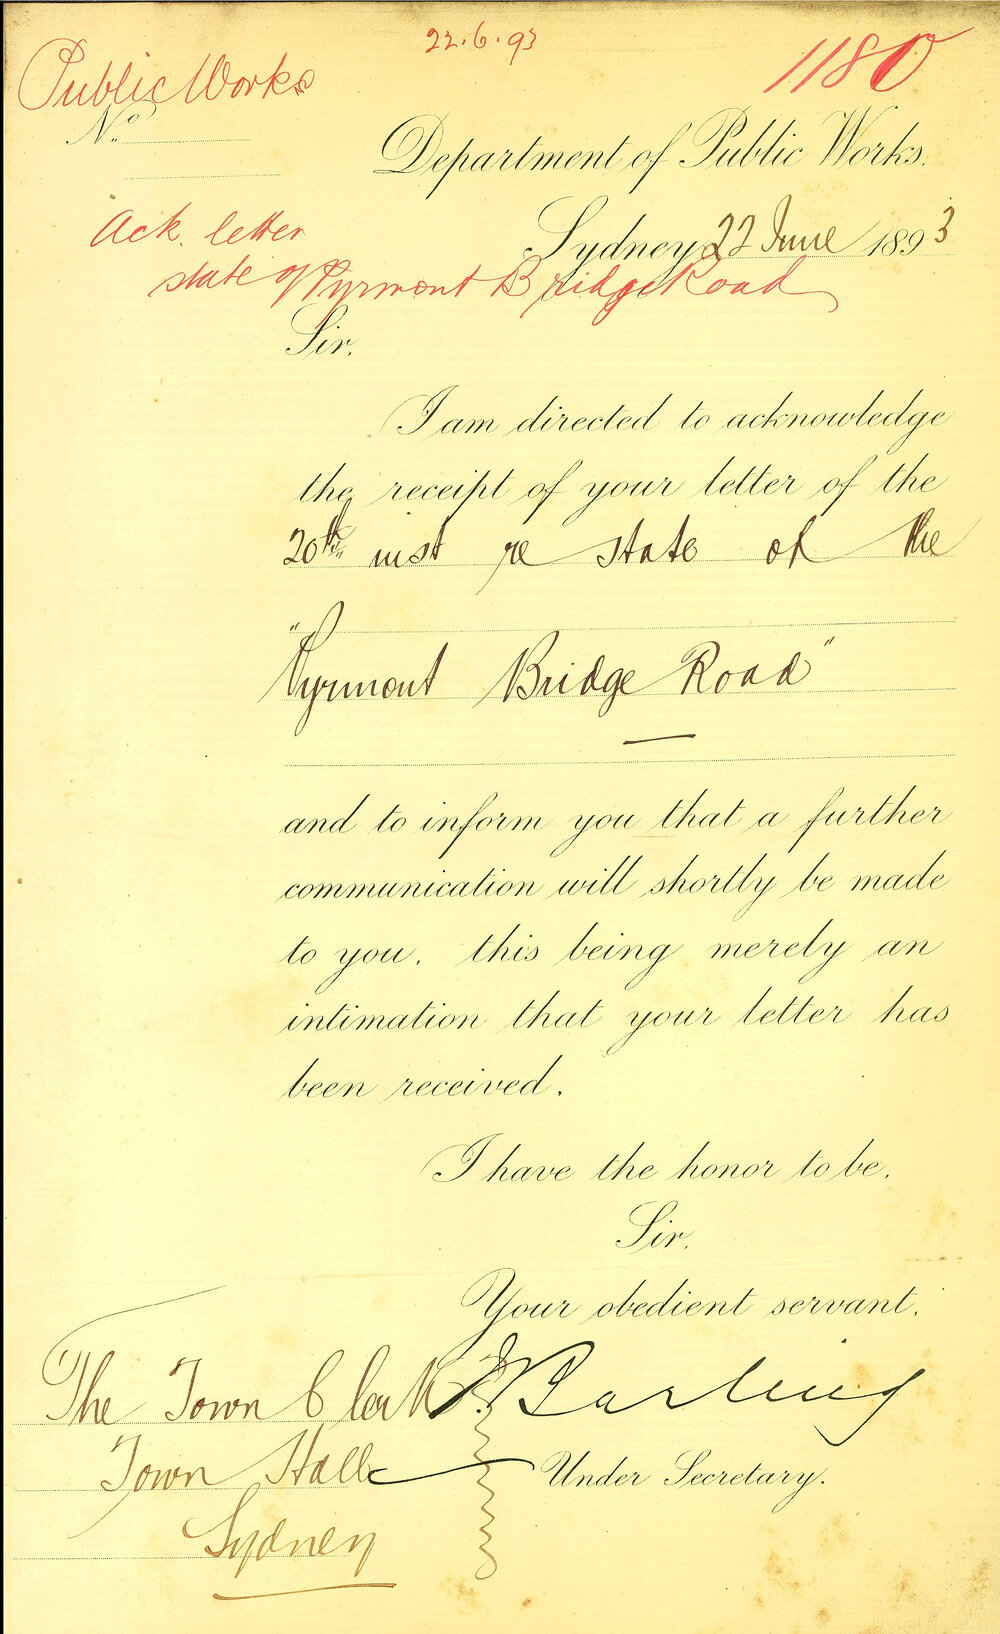 22.6.93
1180
Public Works
No.
Department of Public Works.
Ack. letter
Sydney 22 June 1893
state of Pyrmont Bridge Road
Sir,
I am directed to acknowledge
the receipt of your letter of the
20th inst re state of the
"Pyrmont Bridge Road"
and to inform you that a further
communication will shortly be made
to you, this being merely an
intimation that your letter has
been received.
I have the honor to be,
Sir,
Your obedient servant,
The Town Clerk
Barling
Town Hall
Under Secretary.
Sydney